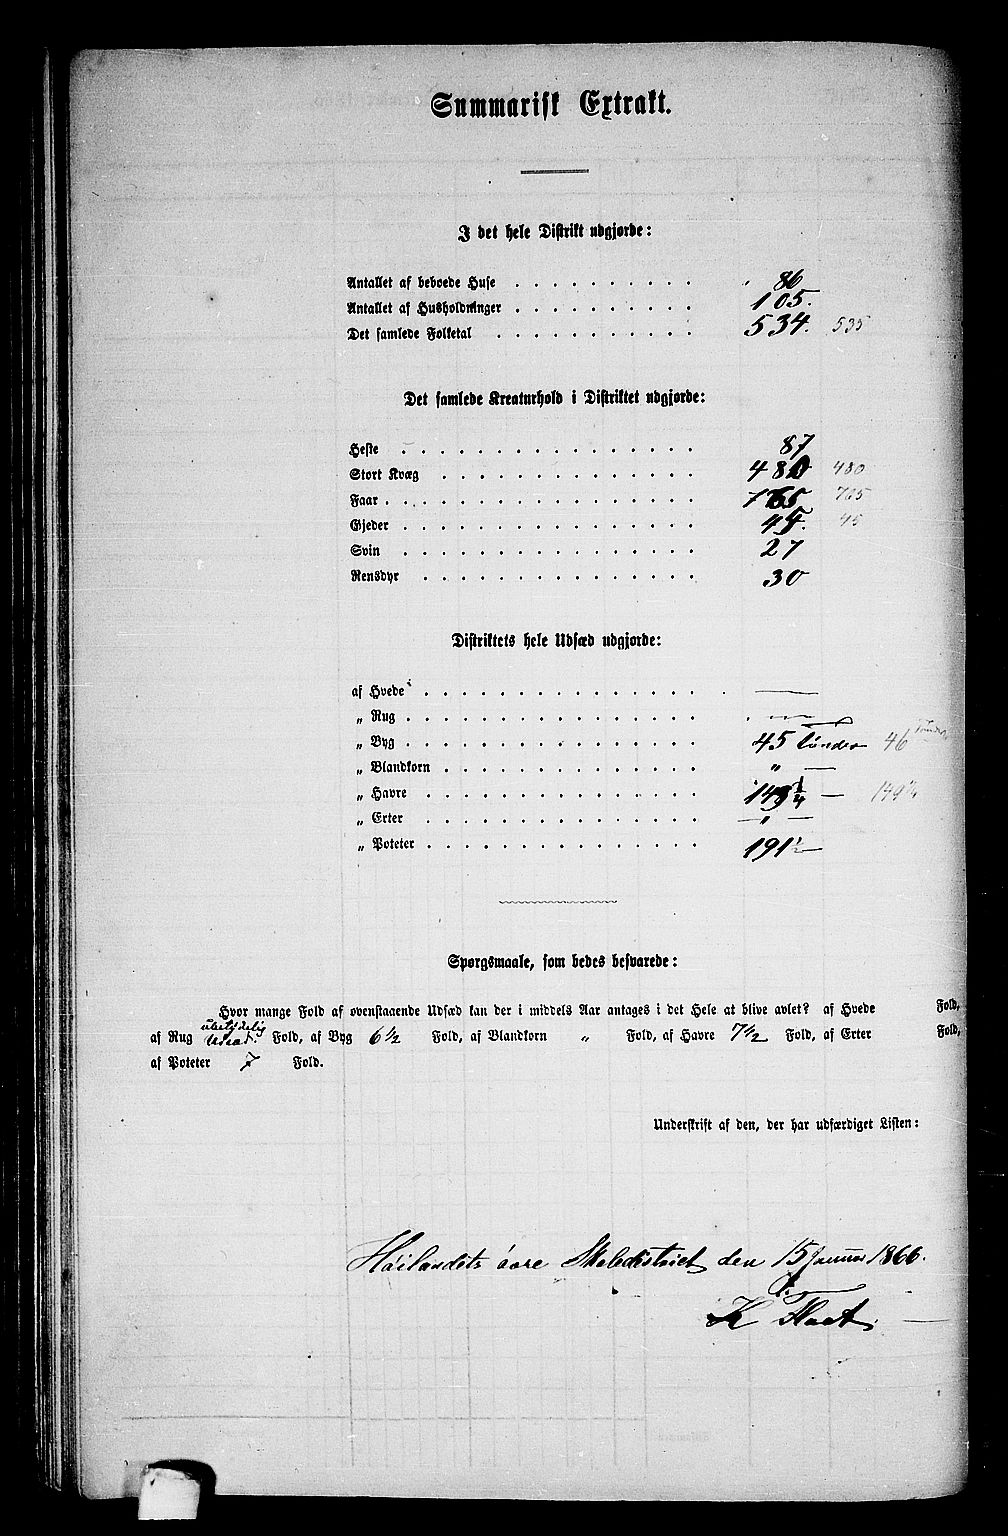 Summarisk Extrakt.
I det hele Distrikt udgjorde:
Antallet af beboede Huse . . . . . . . . . . 86
Antallet af Husholdninger . . . . . . . . . . 105.
Det samlede Folketal . . . . . . . . . . . 534. 535
Det samlede Kreaturhold i Distriktet udgjorde:
Heste . . . . . . . . . . . . . . . . 87
Stort Kvæg . . . . . . . . . . . . . . 480 480
Faar . . . . . . . . . . . . . . . . . 765 765
Gjeder . . . . . . . . . . . . . . . . 45. 45
Svin . . . . . . . . . . . . . . . . 27
Rensdyr . . . . . . . . . . . . . . . 30
Distriktets hele Udsæd udgjorde:
af Hvede . . . . . . . . . . . . . . . —
„ Rug . . . . . . . . . . . . . . . . —
„ Byg . . . . . . . . . . . . . . . . 45 Tønder 46 Tønder
„ Blandkorn . . . . . . . . . . . . . . „ —
„ Havre . . . . . . . . . . . . . . . 149 1/4 — 149 1/4
„ Erter . . . . . . . . . . . . . . . — „ —
„ Poteter . . . . . . . . . . . . . . . 191 1/2 —
Spørgsmaale, som bedes besvarede:
Hvor mange Fold af ovenstaaende Udsæd kan der i middels Aar antages i det Hele at blive avlet? af Hvede Fold,
af Rug ubetydelig Udsæd. Fold, af Byg 6 1/2 Fold, af Blandkorn „ Fold, af Havre 7 1/2 Fold, af Erter Fold,
af Poteter 7 Fold.
Underskrift af den, der har udfærdiget Listen:
Høilandets øvre Skoledistrict den 15 Januar 1866.